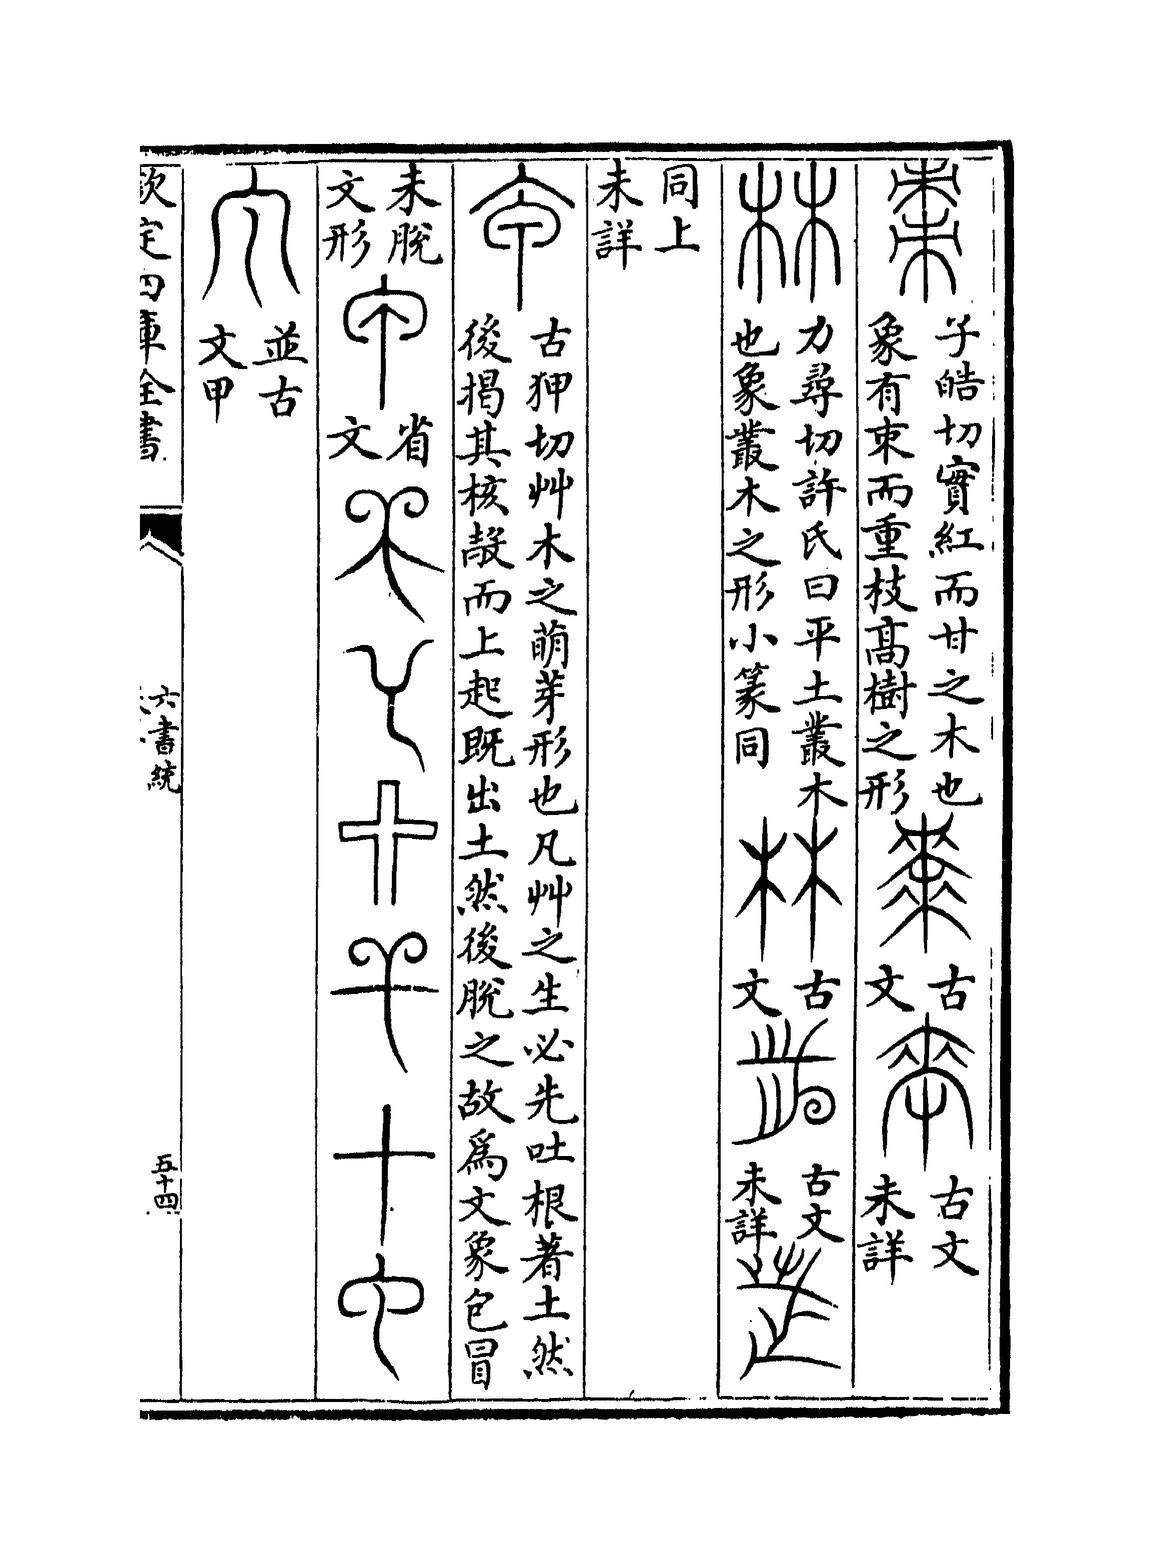 棗
子皓切實紅而甘之木也
象有朿而重枝高樹之形
古
文
古文
未詳
林
力尋切許氏曰平土叢木
也象叢木之形小篆同
古
文
古文
未詳
同上
未詳
古狎切艸木之萌芽形也凡艸之生必先吐根著土然
後揭其核㱿而上起既出土然後脫之故爲文象包冒
未脫
文形
省
文
並古
文甲
欽定四庫全書
六書統
五十四